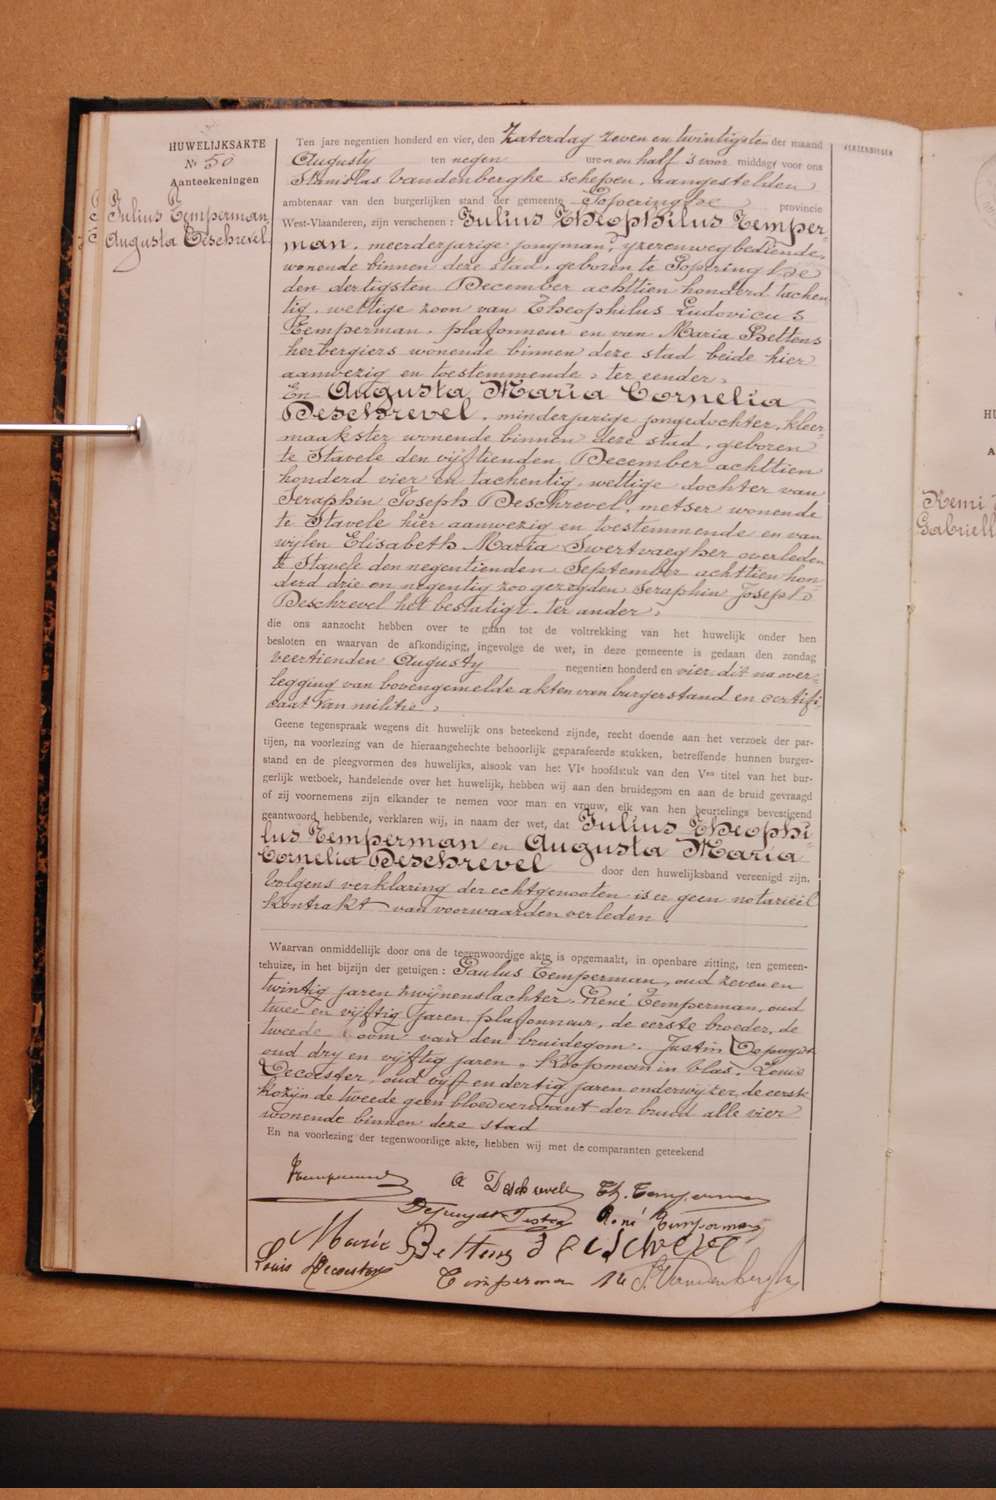 HUWELIJKSAKTE
Nr 50
Aanteekeningen
Julius Temperman
Augusta Deschrevel
Ten jare negentien honderd en vier, den Zaterdag zeven en twintigsten der maand
Augusty ten negen uren en half 's voor middag, voor ons
Stanislas Vandenberghe schepen, aangestelden
ambtenaar van den burgerlijken stand der gemeente Poperinghe provincie
West-Vlaanderen, zijn verschenen : Julius Theophilus Temper-
man, meerderjarige jongman, yzerenwegbediende,
wonende binnen deze stad, geboren te Poperinghe
den dertigsten December achttien honderd tachen
tig, wettige zoon van Theophilus Ludovicus
Temperman, plafonneur en van Maria Bettens
herbergiers wonende binnen deze stad beide hier
aanwezig en toestemmende, ter eender,
En Augusta Maria Cornelia
Deschrevel, minderjarige jongedochter, kleer-
maakster wonende binnen deze stad, geboren
te Stavele den vijftienden December achttien
honderd vier en tachentig, wettige dochter van
Seraphin Joseph Deschrevel, metser wonende
te Stavele hier aanwezig en toestemmende en van
wylen Elisabeth Maria Swertvaegher overleden
te Stavele den negentienden September achttien hon-
derd drie en negentig zoo gezegden Seraphin Joseph
Deschrevel het bestatigt. ter ander,
die ons aanzocht hebben over te gaan tot de voltrekking van het huwelijk onder hen
besloten en waarvan de afkondiging, ingevolge de wet, in deze gemeente is gedaan den zondag
veertienden Augusty negentien honderd en vier dit na over-
legging van bovengemelde akten van burgerstand en certifi-
caat van militie,
Geene tegenspraak wegens dit huwelijk ons beteekend zijnde, recht doende aan het verzoek der par-
tijen, na voorlezing van de hieraangehechte behoorlijk geparafeerde stukken, betreffende hunnen burger-
stand en de pleegvormen des huwelijks, alsook van het VIe hoofdstuk van den Ven titel van het bur-
gerlijk wetboek, handelende over het huwelijk, hebben wij aan den bruidegom en aan de bruid gevraagd
of zij voornemens zijn elkander te nemen voor man en vrouw, elk van hen beurtelings bevestigend
geantwoord hebbende, verklaren wij, in naam der wet, dat Julius Theophi-
lus Temperman en Augusta Maria
Cornelia Deschrevel door den huwelijksband vereenigd zijn.
Volgens verklaring der echtgenooten is er geen notarieel
kontrakt van voorwaarden verleden.
Waarvan onmiddellijk door ons de tegenwoordige akte is opgemaakt, in openbare zitting, ten gemeen-
tehuize, in het bijzijn der getuigen : Paulus Temperman, oud zeven en
twintig jaren zwijnenslachter, René Temperman, oud
twee en vijftig jaren plafonneur, de eerste broeder, de
tweede oom van den bruidegom. Justin Depuydt
oud dry en vijftig jaren, koopman in vlas, Louis
Decoester, oud vijf en dertig jaren onderwyzer, de eerste
kozijn de tweede geen bloedverwant der bruid alle vier
wonende binnen deze stad
En na voorlezing der tegenwoordige akte, hebben wij met de comparanten geteekend
Temperman A Deschrevel Th. Temperman
Depuydt Justin René Temperman
Marie Bettens Deschrevel
Louis Decoester Temperman S. Vandenberghe
VERZENDINGEN
Remi
Gabriell